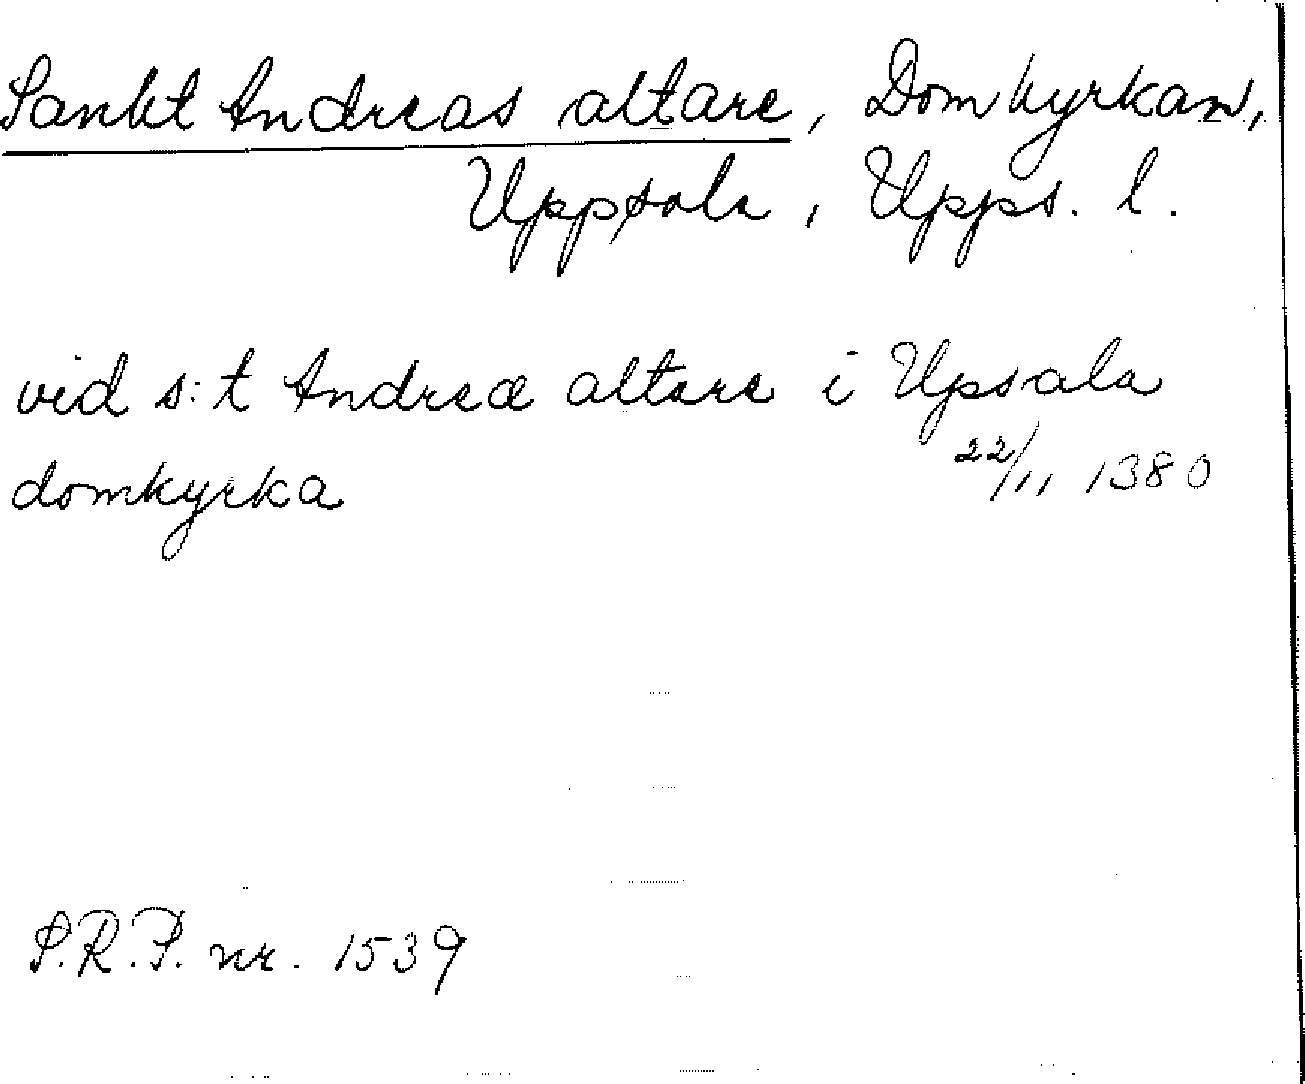 Sankt Andreas altare, Domkyrkan,
Uppsala, Upps. l.
vid s:t Andreæ altare i Upsala
domkyrka 22/11 1380
S.R.P. nr. 1539